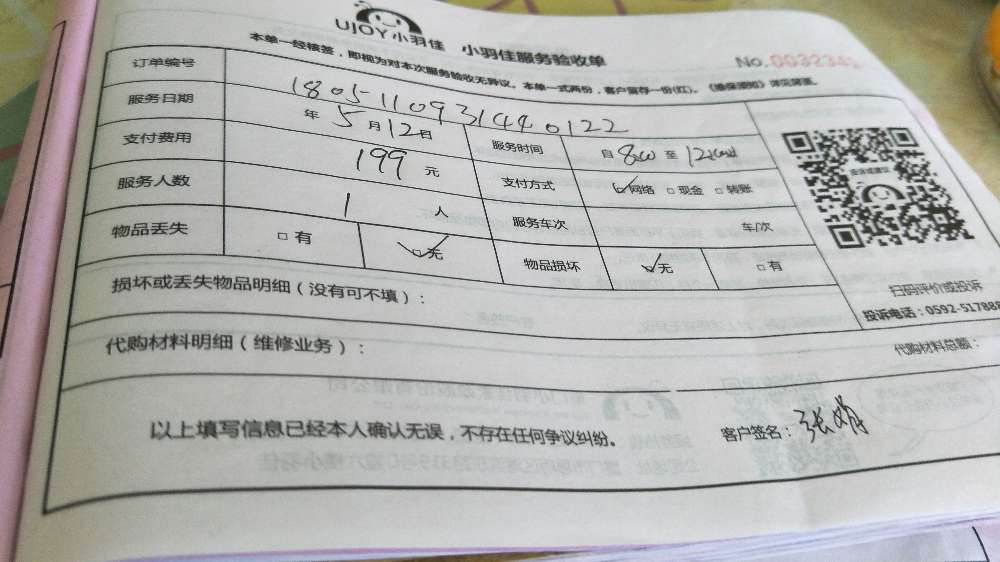 UJOY小羽佳 小羽佳服务验收单
No.003234
本单一经核签，即视为对本次服务验收无异议。本单一式两份，客户留存一份(红)。《维保须知》详见背面。
订单编号 180511093144 0122
服务日期 年 5 月 12 日 服务时间 自 8:00 至 12:00
支付费用 199 元 支付方式 网络 现金 转账
服务人数 1 人 服务车次 车/次
物品丢失 有 无 物品损坏 无 有
扫码评价或投诉
投诉电话：0592-517888
损坏或丢失物品明细（没有可不填）：
代购材料明细（维修业务）： 代购材料总额：
以上填写信息已经本人确认无误，不存在任何争议纠纷。 客户签名：张娟